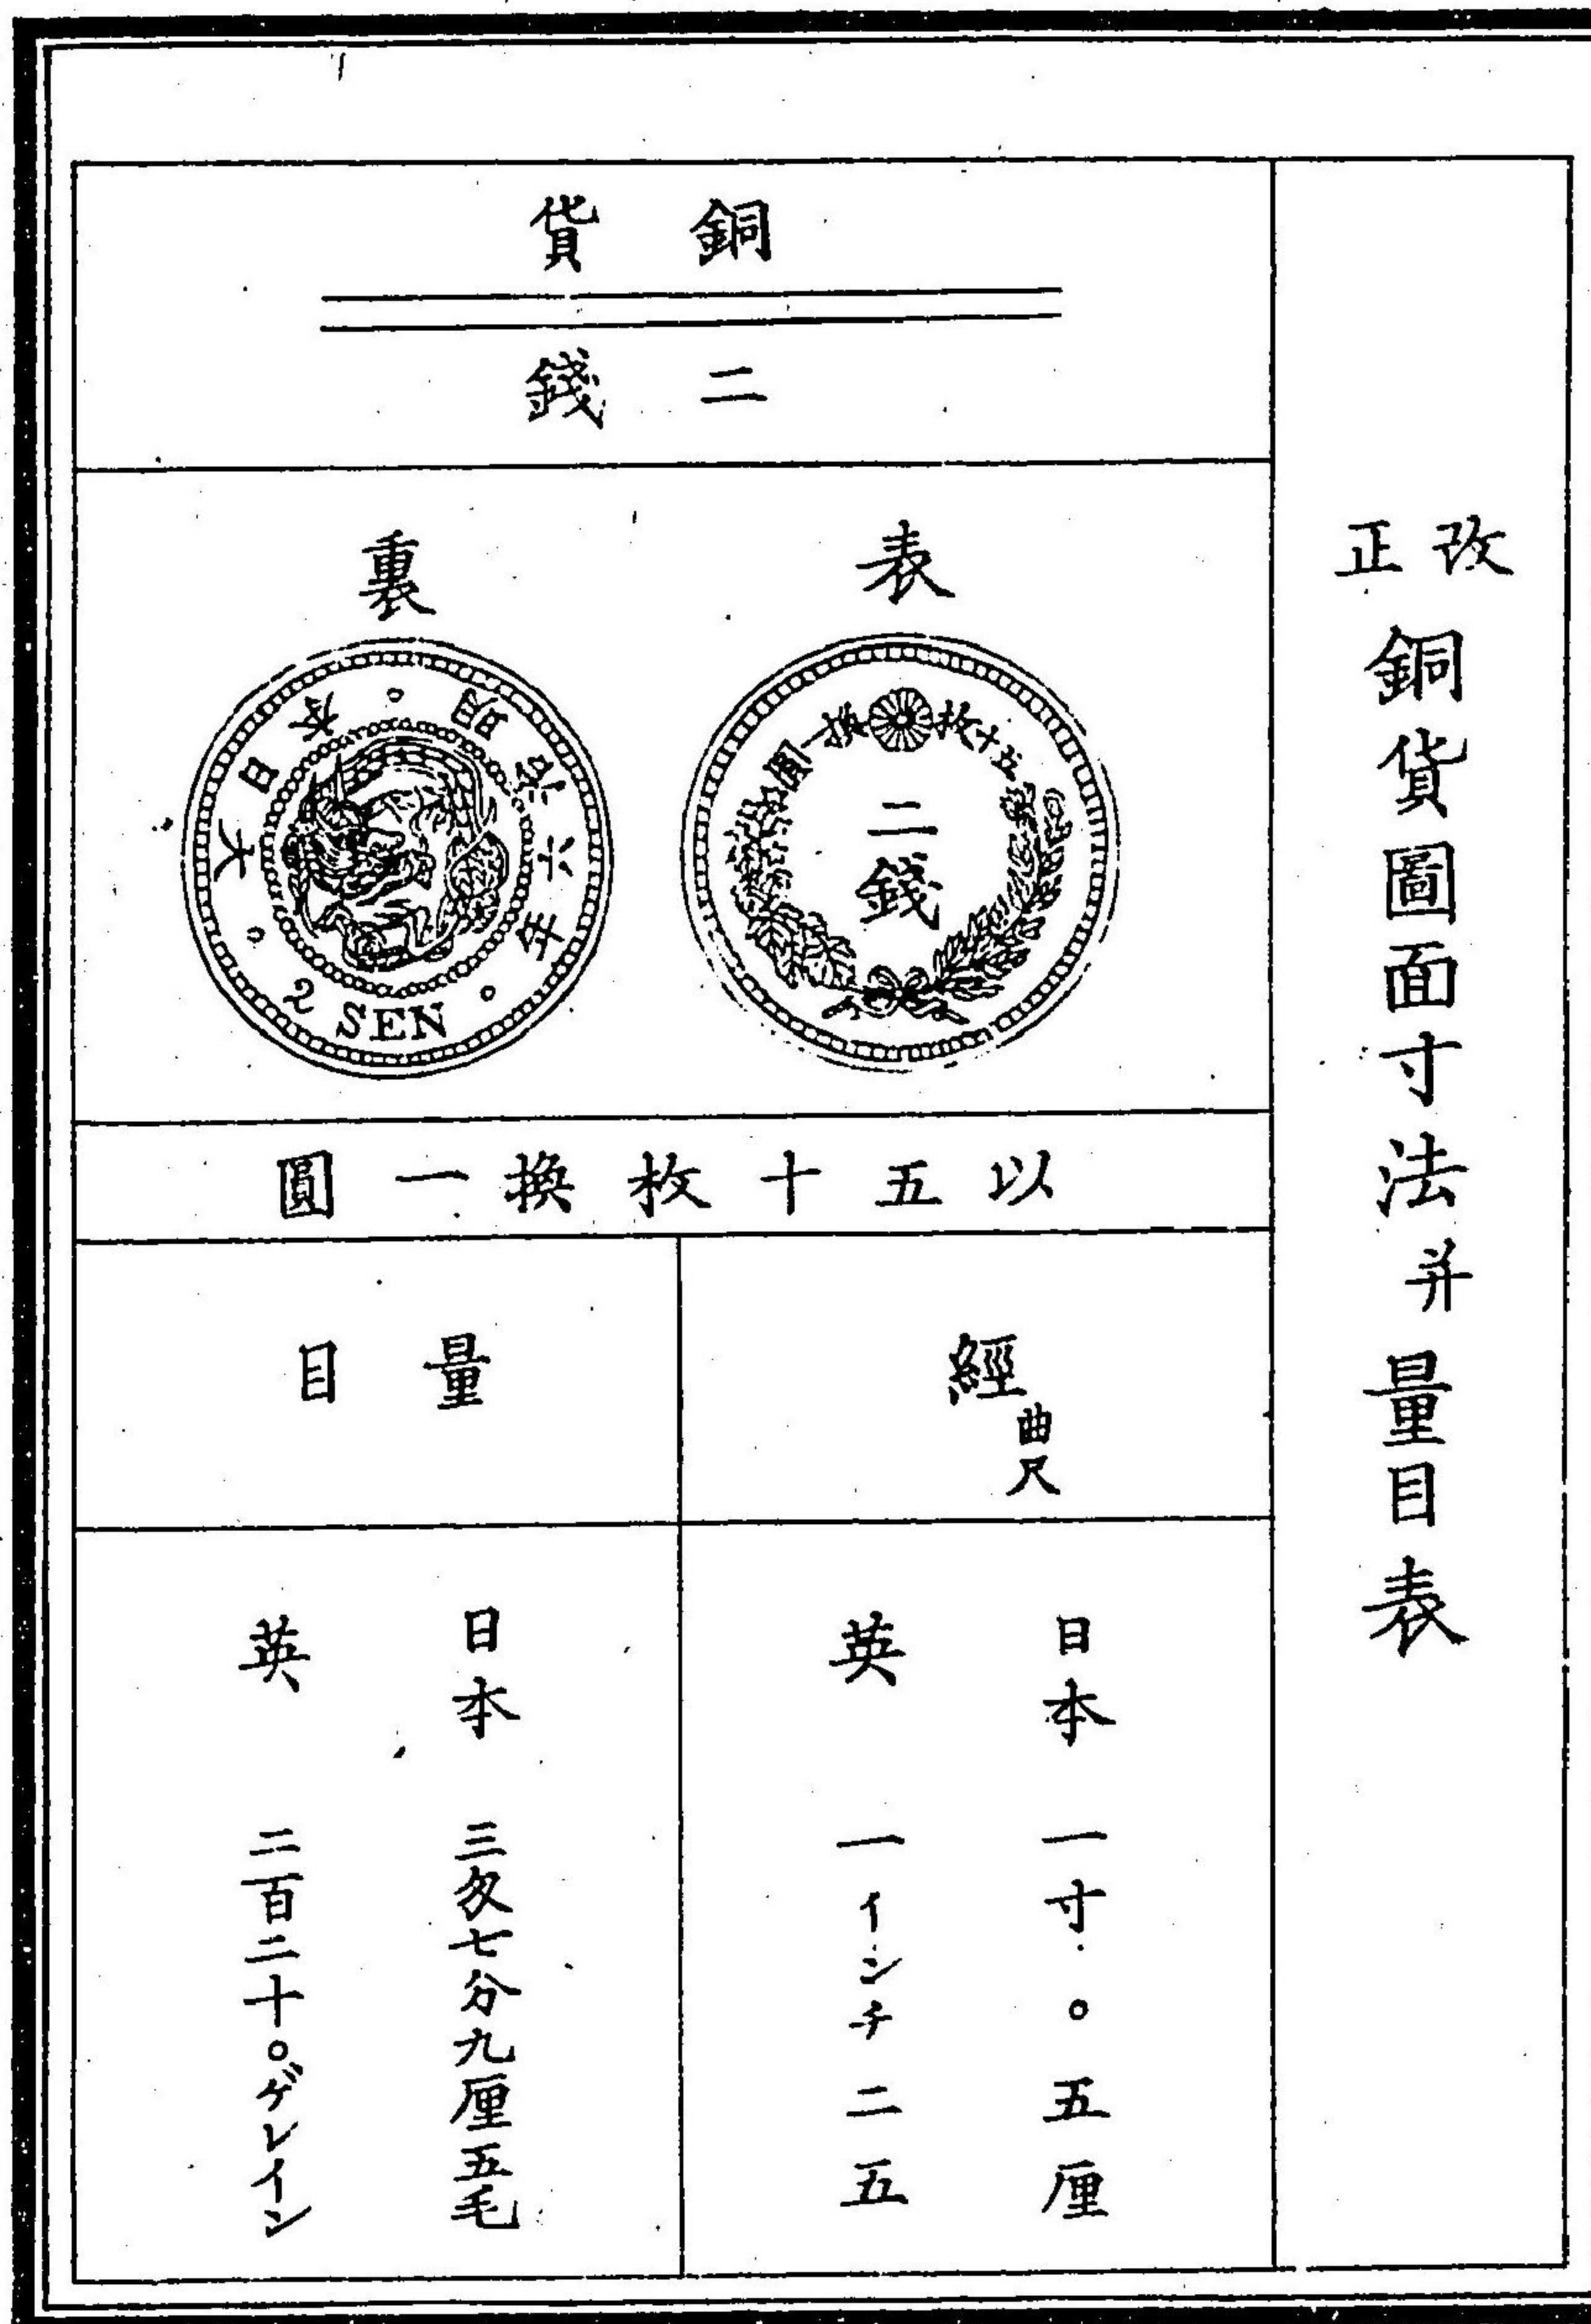 改正銅貨圖面寸法并量目表
銅貨
二錢
表
五十枚換一圓
二錢
裏
大日本・明治六年・2 SEN・
以五十枚換一圓
經曲尺
日本 一寸〇五厘
英 一インチ二五
量目
日本 三匁七分九厘五毛
英 二百二十〇ゲレイン